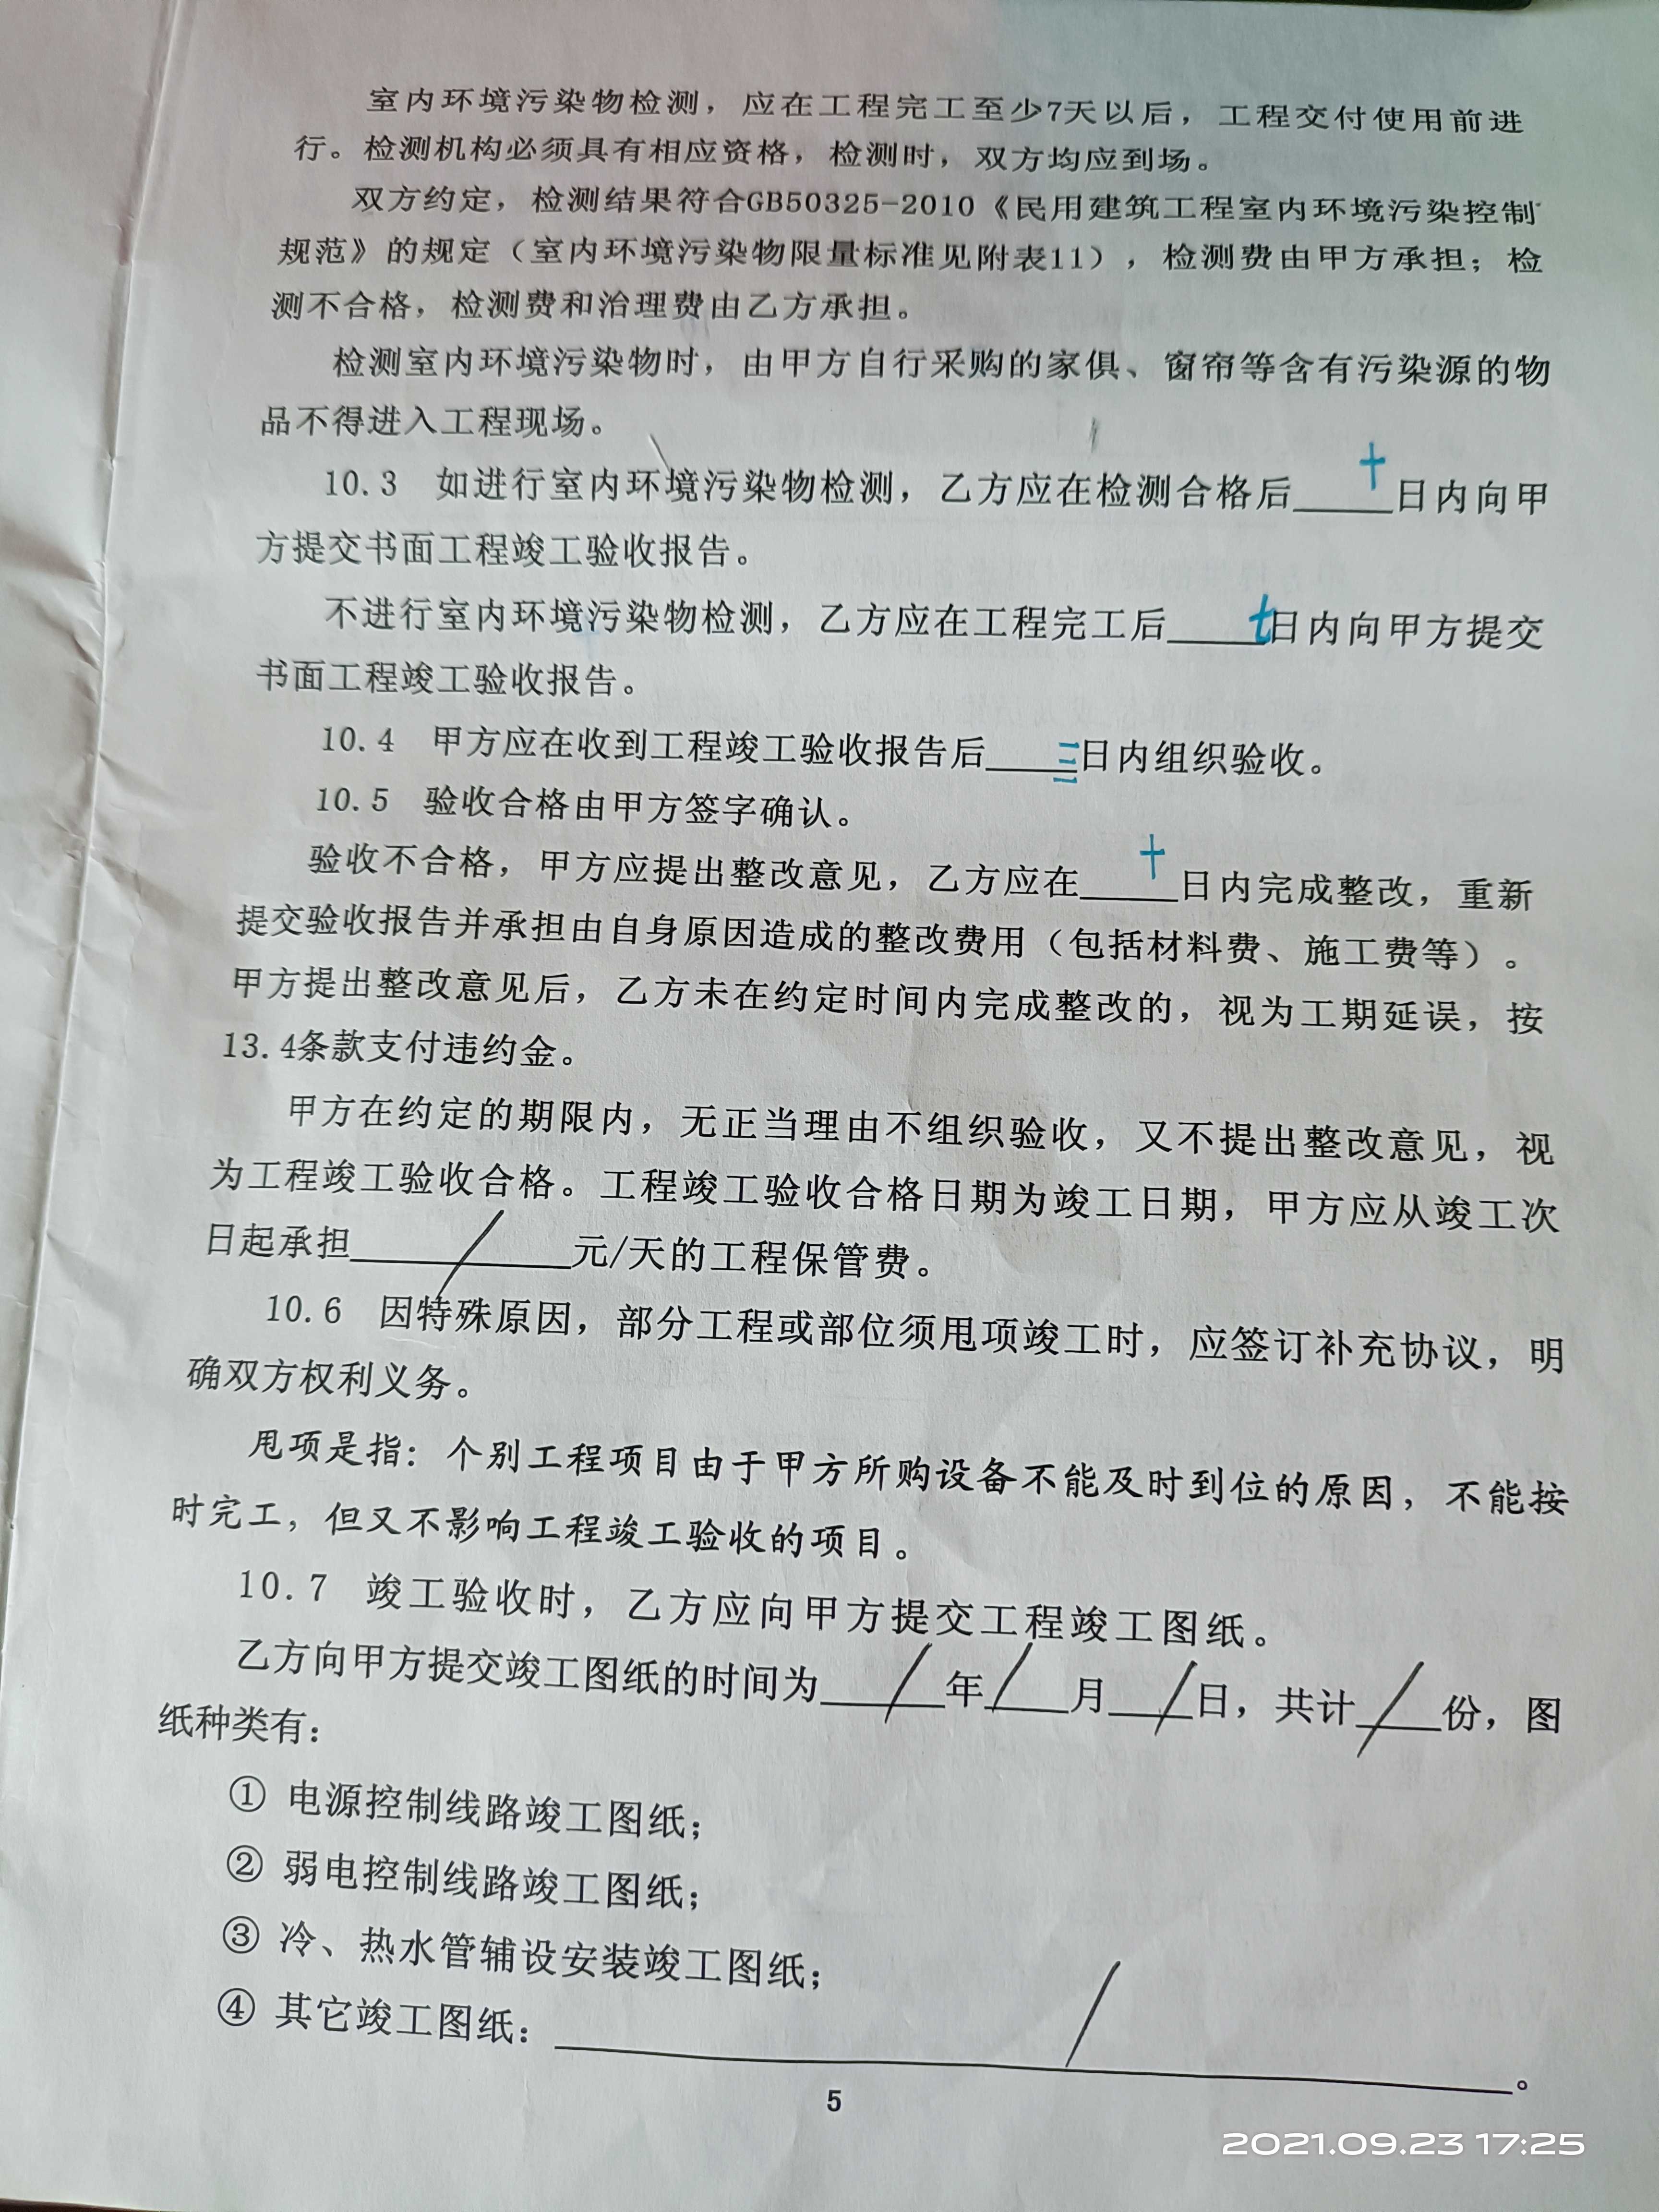 室内环境污染物检测，应在工程完工至少7天以后，工程交付使用前进
行。检测机构必须具有相应资格，检测时，双方均应到场。
双方约定，检测结果符合GB50325-2010《民用建筑工程室内环境污染控制
规范》的规定（室内环境污染物限量标准见附表11），检测费由甲方承担；检
测不合格，检测费和治理费由乙方承担。
检测室内环境污染物时，由甲方自行采购的家俱、窗帘等含有污染源的物
品不得进入工程现场。
10.3 如进行室内环境污染物检测，乙方应在检测合格后十日内向甲
方提交书面工程竣工验收报告。
不进行室内环境污染物检测，乙方应在工程完工后七日内向甲方提交
书面工程竣工验收报告。
10.4 甲方应在收到工程竣工验收报告后三日内组织验收。
10.5 验收合格由甲方签字确认。
验收不合格，甲方应提出整改意见，乙方应在十日内完成整改，重新
提交验收报告并承担由自身原因造成的整改费用（包括材料费、施工费等）。
甲方提出整改意见后，乙方未在约定时间内完成整改的，视为工期延误，按
13.4条款支付违约金。
甲方在约定的期限内，无正当理由不组织验收，又不提出整改意见，视
为工程竣工验收合格。工程竣工验收合格日期为竣工日期，甲方应从竣工次
日起承担/元/天的工程保管费。
10.6 因特殊原因，部分工程或部位须甩项竣工时，应签订补充协议，明
确双方权利义务。
甩项是指：个别工程项目由于甲方所购设备不能及时到位的原因，不能按
时完工，但又不影响工程竣工验收的项目。
10.7 竣工验收时，乙方应向甲方提交工程竣工图纸。
乙方向甲方提交竣工图纸的时间为/年/月/日，共计/份，图
纸种类有：
① 电源控制线路竣工图纸；
② 弱电控制线路竣工图纸；
③ 冷、热水管辅设安装竣工图纸；
④ 其它竣工图纸：/。
5
2021.09.23 17:25